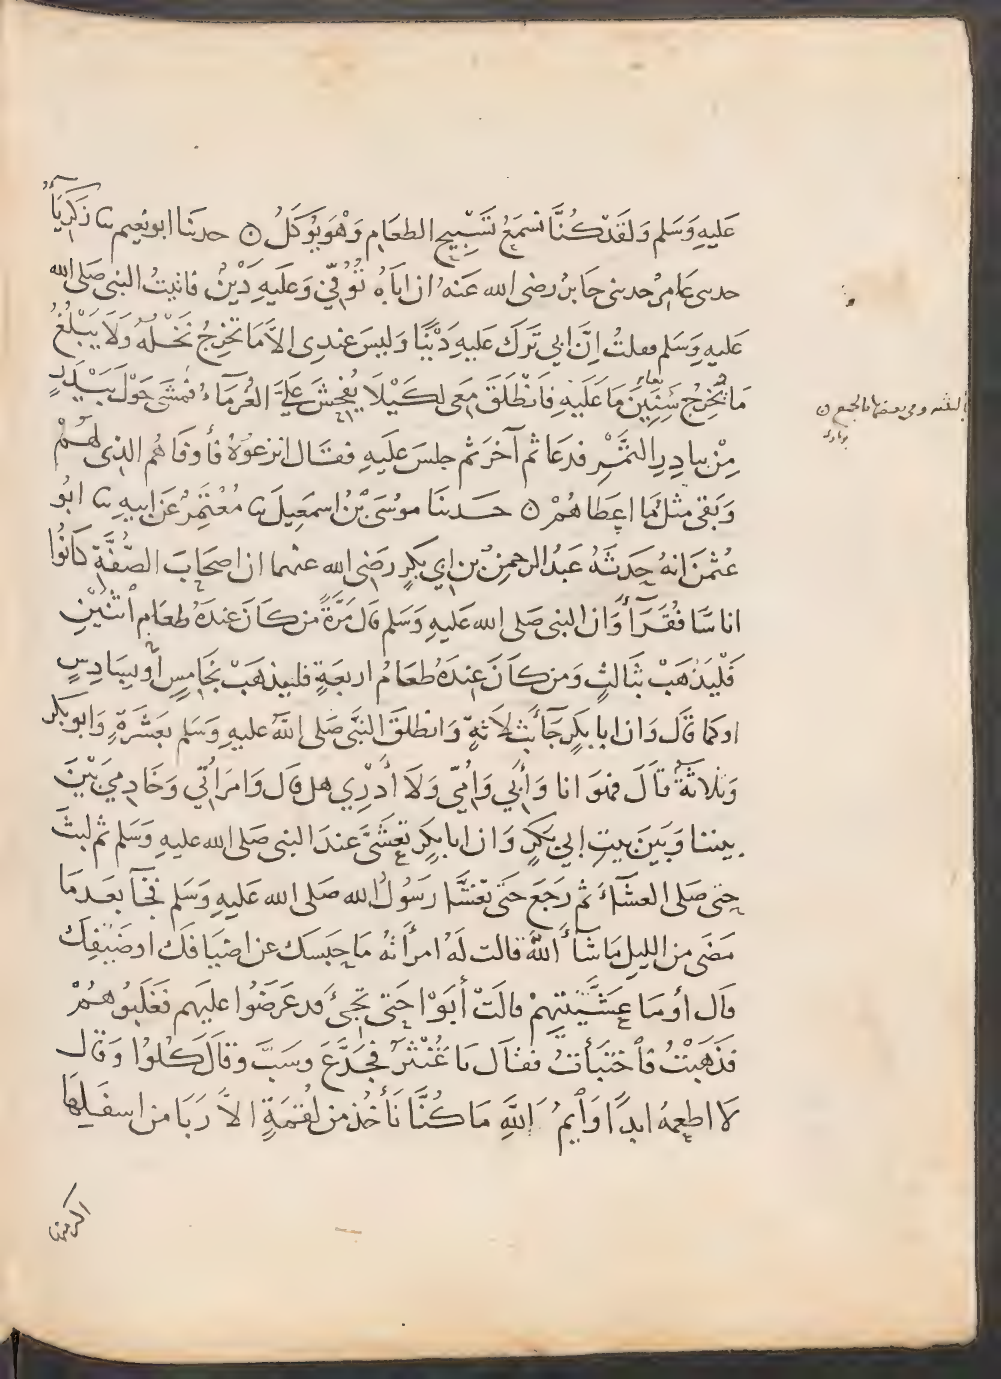 عَليهِ وَسَلم وَلقَدْ كُنَّا نسمَعُ تَسْبِيحَ الطعَامِ وَهْوَ يُوكَلُ ۞ حدثنا ابو نعيم ثنا زكَرِيَّاءُ
حدثنى عَامِر حدثنى جَابر رضى الله عَنهُ ان ابَاهُ تُوُفِّيَ وَعَليهِ دَيْنٌ فاتيتُ النبى صَلى الله
عَليهِ وَسَلم فقلتُ اِنَّ ابي تَرَكَ عَليهِ دَيْنًا وَليسَ عندِى الاَّ مَا تخرِجُ نَخْلُهُ وَلاَ يَبْلُغُ
مَا تُخْرِجُ سِنِينَ مَا عَلَيهِ فَانْطَلِقْ مَعِى لكَيْلاَ يُفحِشَ عَلَيَّ الغُرمَاءُ فمَشَى حَوْلَ بَيْدَرٍ
مِنْ بيادِرِ التَّمْرِ فدعَا ثم آخَرَ ثم جلسَ عَليهِ فقال انزعُوهُ فأوفاهُم الذى لهُمْ
وَبَقِى مثلُ مَا اعطَاهُمْ ۞ حَدثنَا موُسَى بْنُ اسمَعِيلَ ثنا مُعْتَمِرٌ عَن ابيهِ ثنا ابُو
عُثمٰنَ انهُ حَدثَهُ عَبدُ الرحمنِ بن ابي بَكرٍ رضَى الله عنهما ان اصحَابَ الصُّفَّةِ كانُوا
اناسًا فقَرَآءَ وَان النبى صَلى الله عَليهِ وَسَلم قال مَرَّةً من كَانَ عندَهُ طعَام اثنَيْنِ
فَلْيَذْهَبْ بثَالثٍ وَمَن كانَ عِندَهُ طعَامُ اربعَةٍ فليذهَبْ بخَامِسٍ أو سِادِسٍ
او كما قال وَان ابا بكرٍ جَآءَ بثلاَثةٍ وَانطلقَ النبَّى صَلى اللهُ عليهِ وَسَلم بعَشَرَةٍ وَابو بَكر
وَثلاثةً قالَ فهو انا وَأبَي وَأُمِّي وَلاَ أدْرِي هل قال وَامرَأتي وَخَادِمِي بَيْنَ
بيتنا وَبَينَ بيتِ ابي بَكرٍ وَان ابا بكرٍ تعَشَّى عندَ النبى صَلى الله عليهِ وَسَلم ثم لبثَ
حتى صَلى العشَآءَ ثم رَجَعَ حَتى تعَشَّا رَسُولُ الله صَلى الله عَليهِ وَسَلم فجَآءَ بعدَ مَا
مَضَى من الليلِ مَا شَآءَ اللهُ قالت لَهُ امرأتُهُ مَا حَبَسَكَ عن اضيَافكَ او ضَيْفِكَ
قال أوَمَا عَشَّيْتِهِمْ قالتْ أبَوْا حَتى تجئَ قد عَرَضُوا عليهم فغَلبُوهُمْ
فذَهَبْتُ فاخْتَبَأتُ فقال يَا غُنْثَرُ فجَدَّعَ وسَبَّ وقالَ كلُوُا وَقال
لاَ اطعِمُهُ ابدًا وَايمُ اللهِ مَا كُنَّا نأخُذ من لقمَةٍ الاَّ رَبَا من اسفلِهَا
اكثر منها